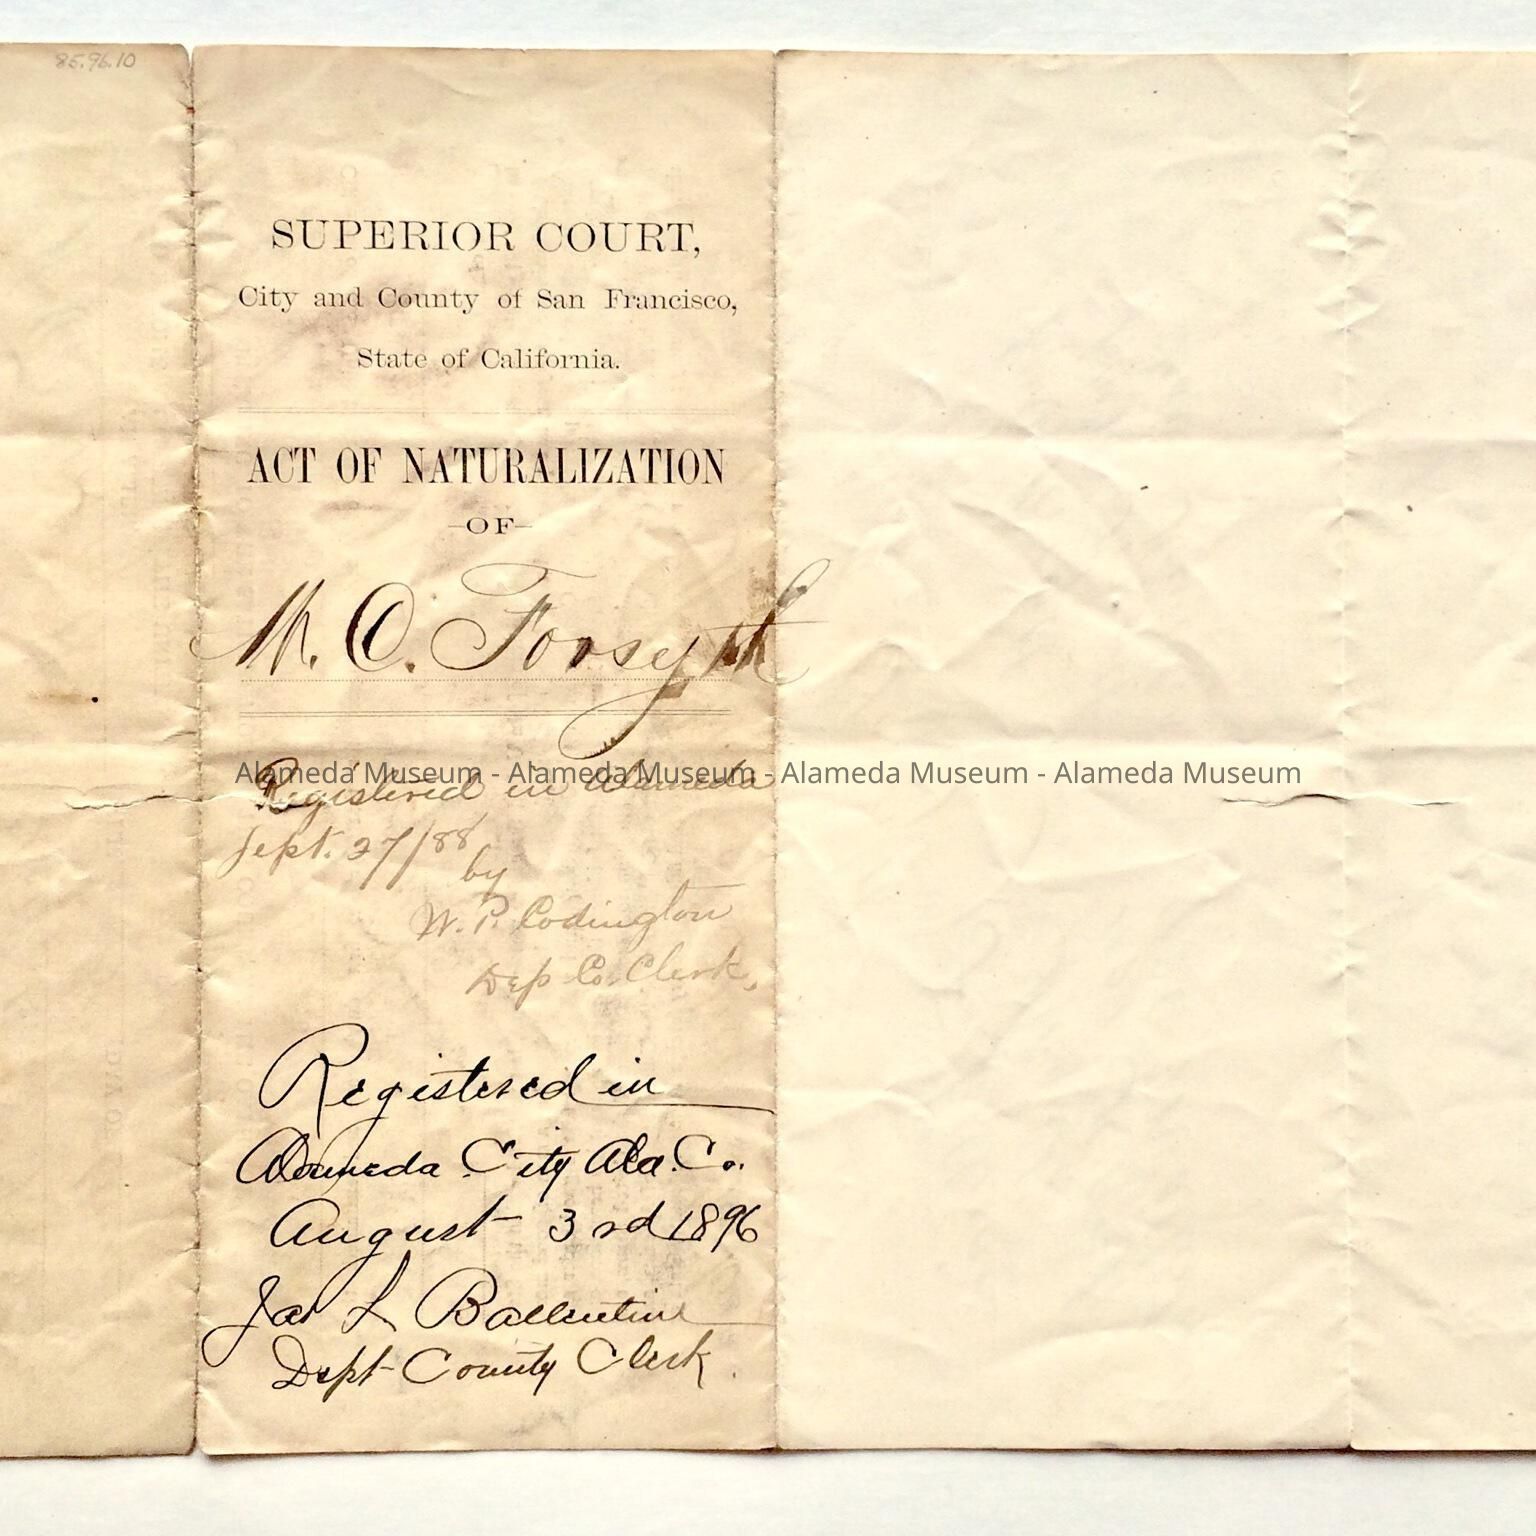 85.96.10
SUPERIOR COURT,
City and County of San Francisco,
State of California.
ACT OF NATURALIZATION
-OF-
M. C. Forsyth
Alameda Museum - Alameda Museum - Alameda Museum - Alameda Museum
Registered in Alameda
Sept. 27/88
by
W. P. Codington
Dep Co. Clerk,
Registered in
Alameda City Ala. Co.
August 3rd 1896
Jas L Ballentine
Dept County Clerk.